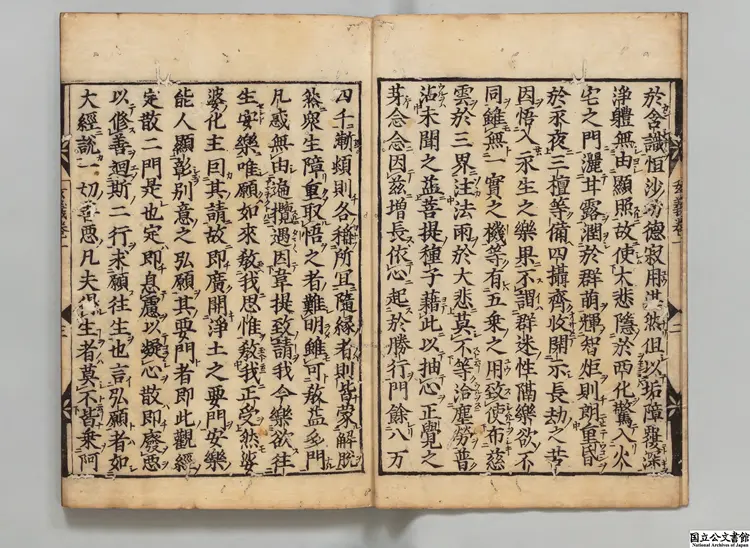 於含識恒沙功德寂用湛然但以垢障覆深
淨體無由顯照故使大悲隱於西化驚入火
宅之門灑甘露潤於群萌輝智炬則朗重昏
於永夜三檀等備四攝齊收開示長劫之苦
因悟入永生之樂果不謂群迷性隔樂欲不
同雖無一實之機等有五乘之用致使布慈
雲於三界注法雨於大悲莫不等洽塵勞普
沾未聞之益菩提種子藉此以抽心正覺之
芽念念因茲增長依心起於勝行門餘八万
四千漸頓則各稱所宜隨緣者則皆蒙解脫
然衆生障重取悟之者難明雖可教益多門
凡惑無由遍攬遇因韋提致請我今樂欲往
生安樂唯願如來教我思惟教我正受然娑
婆化主因其請故即廣開淨土之要門安樂
能人顯彰別意之弘願其要門者即此觀經
定散二門是也定即息慮以凝心散即廢惡
以修善迴斯二行求願往生也言弘願者如
大經說一切善惡凡夫得生者莫不皆乘阿
玄義卷一
二
玄義卷一
三
国立公文書館
National Archives of Japan